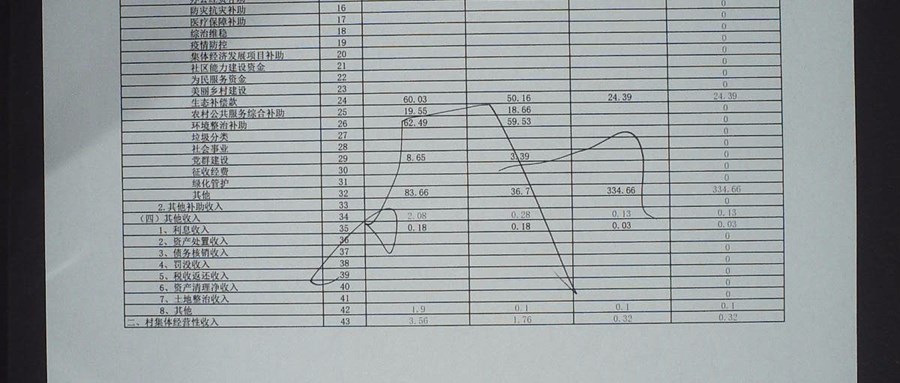 防灾抗灾补助 16 0
医疗保障补助 17 0
综治维稳 18 0
疫情防控 19 0
集体经济发展项目补助 20 0
社区能力建设资金 21 0
为民服务资金 22 0
美丽乡村建设 23 0
生态补偿款 24 60.03 50.16 24.39 24.39
农村公共服务综合补助 25 19.55 18.66 0
环境整治补助 26 62.49 59.53 0
垃圾分类 27 0
社会事业 28 0
党群建设 29 8.65 3.39 0
征收经费 30 0
绿化管护 31 0
其他 32 83.66 36.7 334.66 334.66
2.其他补助收入 33 0
(四)其他收入 34 2.08 0.28 0.13 0.13
1、利息收入 35 0.18 0.18 0.03 0.03
2、资产处置收入 36 0
3、债务核销收入 37 0
4、罚没收入 38 0
5、税收返还收入 39 0
6、资产清理净收入 40 0
7、土地整治收入 41 0
8、其他 42 1.9 0.1 0.1 0.1
二、村集体经营性收入 43 3.56 1.76 0.32 0.32